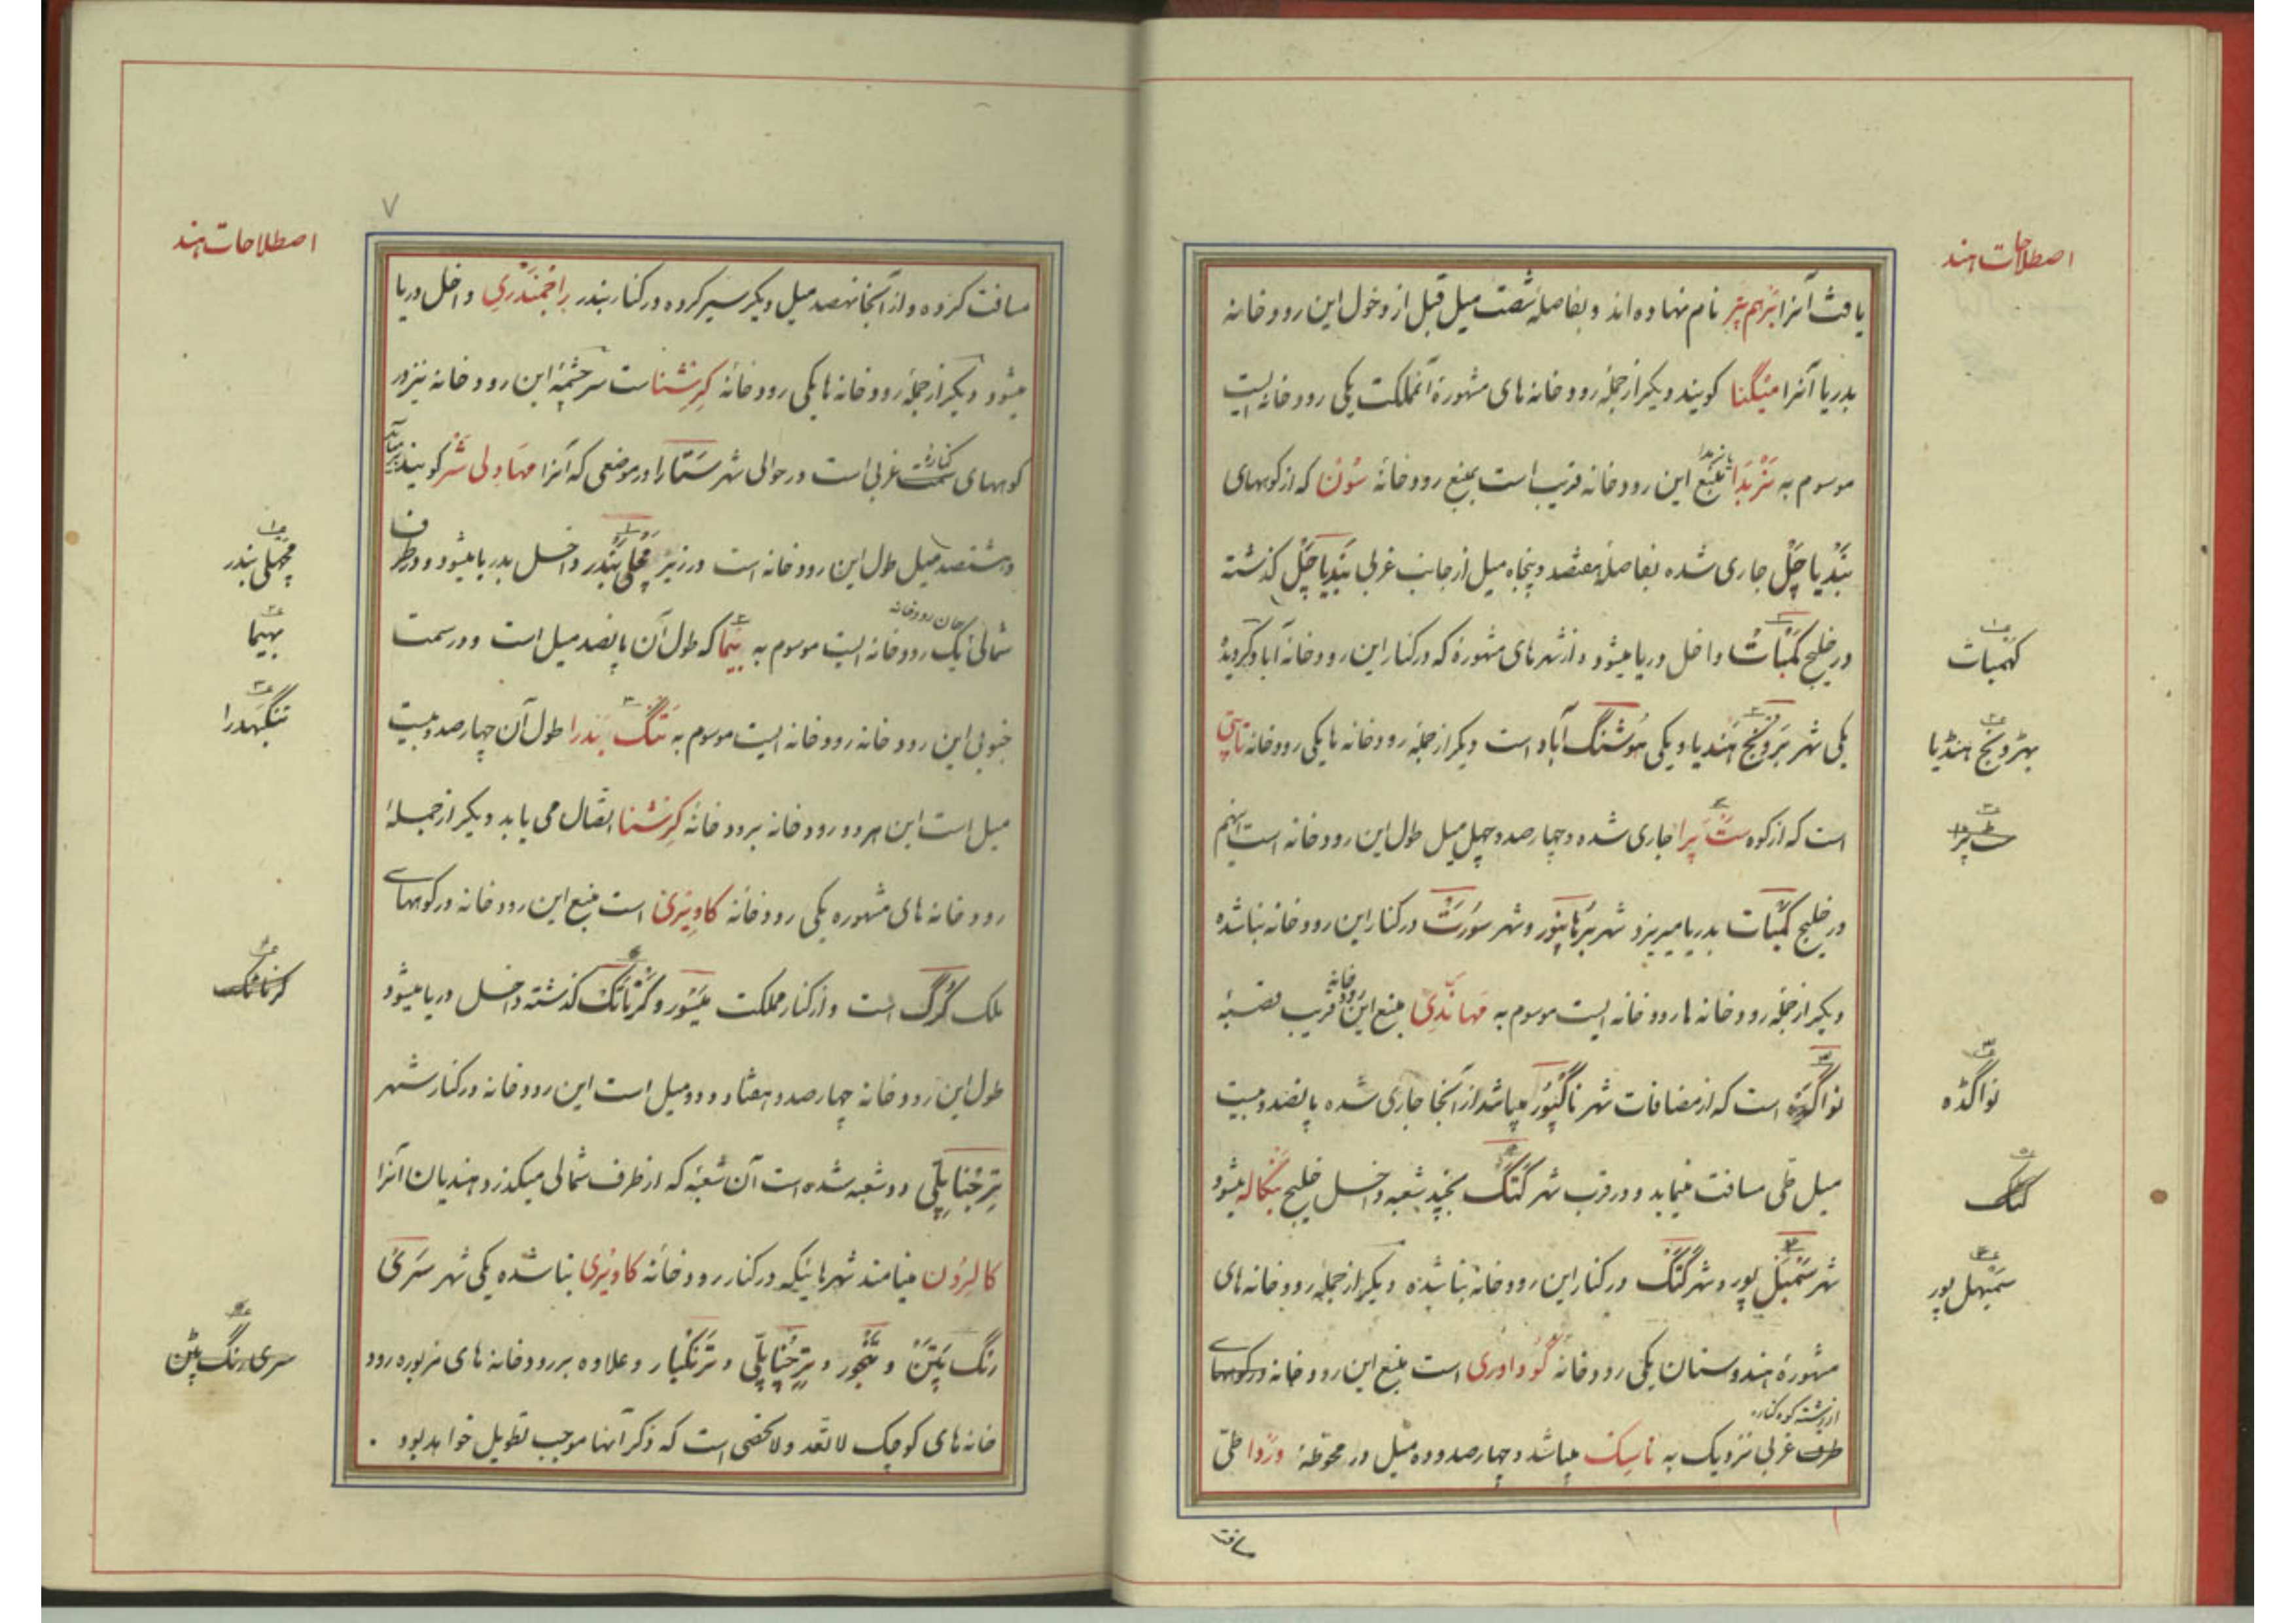 اصطلاحات هند
یافت آنرا بَرْهم پتر نام نهاده اند و بفاصلهٔ شصت میل قبل از دخول این رودخانه
بدریا آنرا میگنا گویند دیگر از جملهٔ رودخانه های مشهورهٔ آنمملکت یکی رودخانه ایست
موسوم به نَرْبَدَا منبع این رودخانه قریب است بمنبع رودخانهٔ سُونْ که از کوههای
بَنْدیاچَلْ جاری شده بفاصلهٔ هفتصد و پنجاه میل از جانب غربی بَنْدیاچَلْ گذشته
در خلیج کَمْبَاتْ داخل دریا میشود و از شهرهای مشهوره که در کنار این رودخانه آباد گردیده
یکی شهر بَروُنچ هَنْدیا و یکی هُوشَنْگ آباد است دیگر از جمله رودخانه ها یکی رودخانه تاپتی
است که از کوه سَتْ پرا جاری شده و چهارصد و چهل میل طول این رودخانه است اینهم
در خلیج کَمْبَات بدریا میریزد شهر بُرْهانپور و شهر سُورَتْ در کنار این رودخانه بنا شده
دیگر از جمله رودخانه ها رودخانه ایست موسوم به مَهانَدِی منبع این رودخانه قریب قصبهٔ
نواگَدَه است که از مضافات شهر ناگْپُورْ میباشد از آنجا جاری شده پانصد و بیست
میل طی مسافت مینماید و در قرب شهر کَتَکْ بچند شعبه داخل خلیج بنگاله میشود
شهر سَمْبَلْ پور و شهر کَتَکْ در کنار این رودخانه بنا شده دیگر از جمله رودخانه های
مشهورهٔ هندوستان یکی رودخانه گُوداوری است منبع این رودخانه در کوههای
از رشته کوه کناره
طرف غربی نزدیک به ناسِک میباشد و چهارصد و ده میل در محوطهٔ وَرْدا طیّ
مسافت
کهنبات
بهڑونچ هنڈیا
ست پڑا
نواگڈه
کٹک
سَمْبهل پور
اصطلاحات هند
۷
مسافت کرده و از آنجا نهصد میل دیگر سیر کرده در کنار بندر راجْمَنْدَرِی داخل دریا
میشود دیگر از جملهٔ رودخانه ها یکی رودخانهٔ کِرِشْنا است سرچشمهٔ این رودخانه نیز در
کوههای سمت کناره غربی است در حوالی شهر سَتَارا در موضعی که آنرا مَهَاوِلی شَرْ گویند میباشد
و هشتصد میل طول این رودخانه است در زیر مَچْلی بَنْدَر داخل بدریا میشود و در طرف
شمالی همان رودخانه یک رودخانه ایست موسوم به بیَما که طول آن پانصد میل است و در سمت
جنوبی این رودخانه رودخانه ایست موسوم به تَنْگ بَندرا طول آن چهارصد و بیست
میل است این هر دو رودخانه برودخانهٔ کرشنا اتصال می یابد دیگر از جملهٔ
رودخانه های مشهوره یکی رودخانهٔ کاوِیْری است منبع این رودخانه در کوههای
ملک کُرْگ است و از کنار مملکت مَیْسُور و کَرْنَاتَکْ گذشته داخل دریا میشود
طول این رودخانه چهارصد و هفتاد و دو میل است این رودخانه در کنار شهر
تِرِچْنَاپِلّی دو شعبه شده است آن شعبهٔ که از طرف شمالی میگذرد هندیان آنرا
کالِرُون مینامند شهرهائیکه در کنار رودخانه کاوِیْری بنا شده یکی شهر سَرِیْ
رنگ پَتَنْ و تَنْجُور و تِرِچْنَاپلّی و تَرَنْگبار و علاوه بر رودخانه های مزبوره رود
خانه های کوچک لاتعد و لاتحصی است که ذکر آنها موجب تطویل خواهد بود .
مچهلی بندر
بهیما
تنگبهدرا
کرناٹک
سری رنگ پٹن